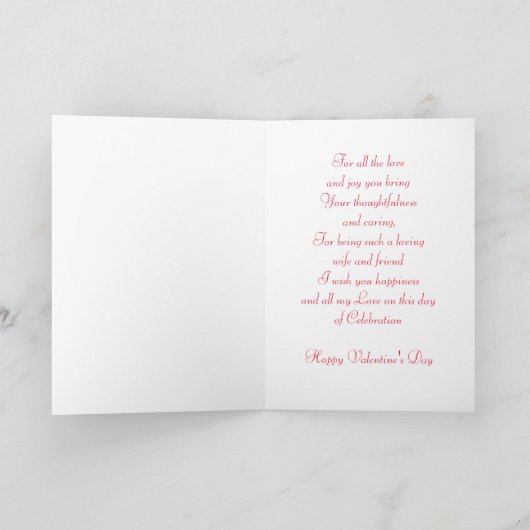 For all the love
and joy you bring
Your thoughtfulness
and caring,
For being such a loving
wife and friend
I wish you happiness
and all my Love on this day
of Celebration
Happy Valentine's Day